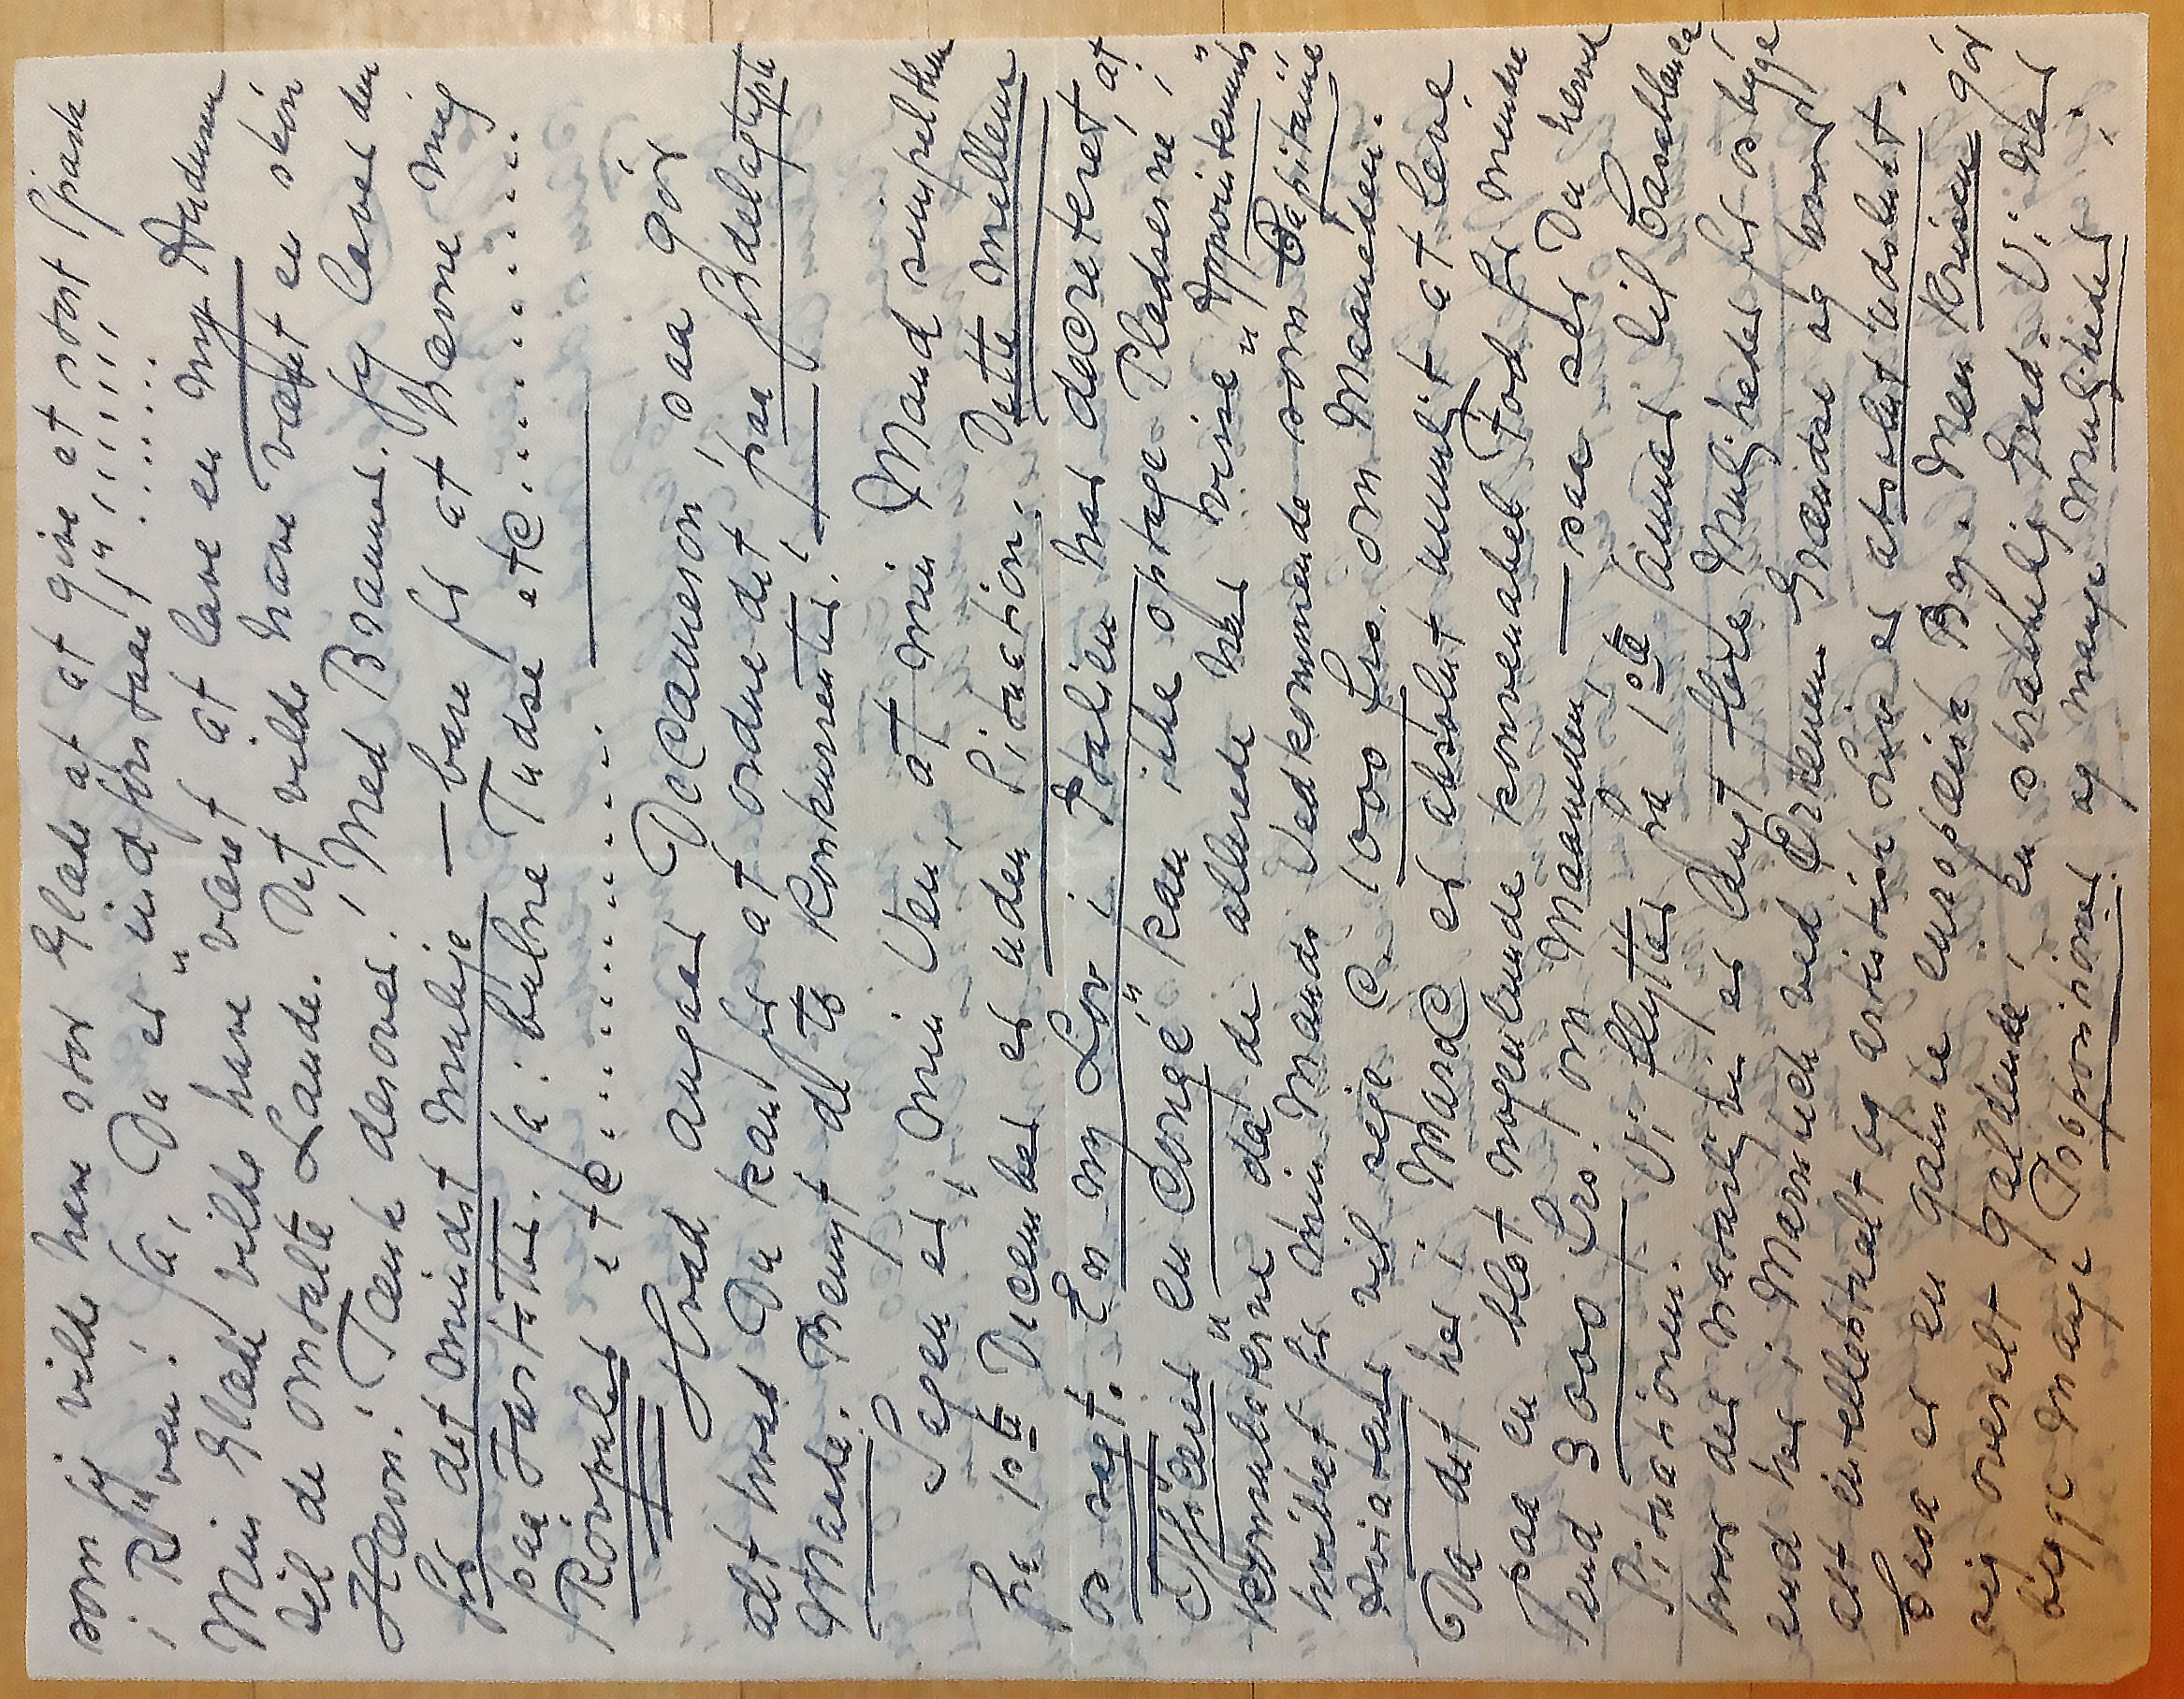 som jeg vilde have stor Glæde af at give et stort Spark
i R"ven! Ja, Du er „indforstaaet"!!!!!!!!
Min Glæde vilde have været at lave en ny Andersen
til de omtalte Lande. Det vilde have været en skøn
Hævn! Tænk derover! Med Branner. Jeg laver den
for det mindst mulige — bare for at hævne mig
paa . Ja: bulne Tudse etc............
Røvpuler etc.............. —
Hvad angaar Decameron, saa gør
alt hvad Du kan for at ordne det, paa fordelagtigste
Maade. Benyt de to Konkurrenter! —
Sagen er, min Ven, at min Mand simpelthen
fra 1ste December er uden Situation. Dette mellem
os sagt. En ny Lov i Italien har decreteret, at
Officerer „en congé" kan ikke optage Pladserne i
Konsulaterne, da de allerede har visse „Appointements"
hvilket for min Mands Vedkommende som Capitaine
Aviateur vil sige c. 1000 frs. om Maaneden.
Da det her i Maroc er absolut umuligt at leve
paa en blot nogenlunde konvenabel Fod for mindre
end 3000 frs! om Maaneden, — saa ser Du herved
Situationen. Vi flytter fra 1ste Januar til Casablanca,
hvor der naturligvis er langt flere Muligheder for os begge
end her i Marrakech ved Ørkenens Grændse og hvor
alt intellektuelt og artistisk Liv er absolut udslukt.
Casa er en ganske europæisk By. Men Krisen gør
sig overalt gældende i en skrækkelig Grad. Vi har
begge mange Propositioner og mange Muligheder i